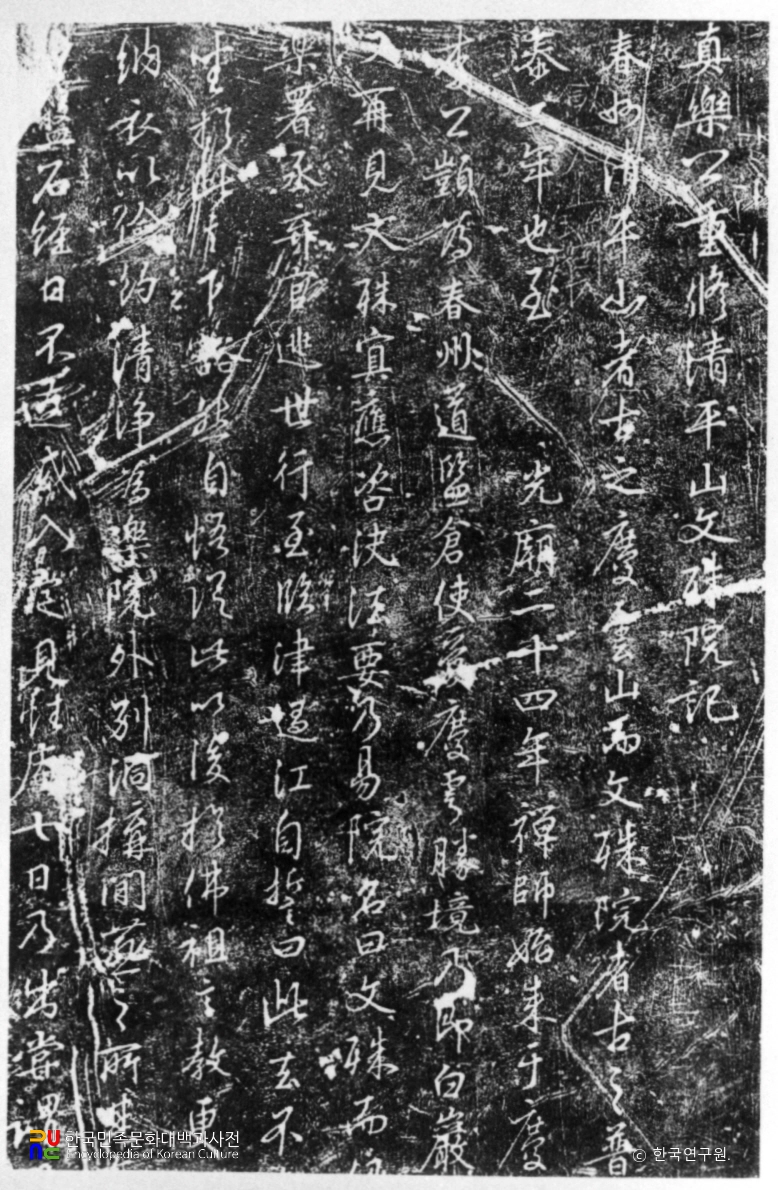 真樂公重修清平山文殊院記
春州清平山者古之慶雲山而文殊院者古之普
泰二年也至 光廟二十四年禪師始来于慶
李公顗為春州道監倉使愛慶雲勝境乃即白巖
再見文殊宜應咨決法要乃易院名曰文殊而
樂署丞弃官逃世行至臨津過江自誓曰此去不
坐於此言下豁然自悟從此以後於佛祖之教更
納衣以儉約清淨為樂院外別洞構閒燕之所
盤石經日不返或入定見性庵七日乃出嘗謂
한국민족문화대백과사전
Encyclopedia of Korean Culture
© 한국연구원.